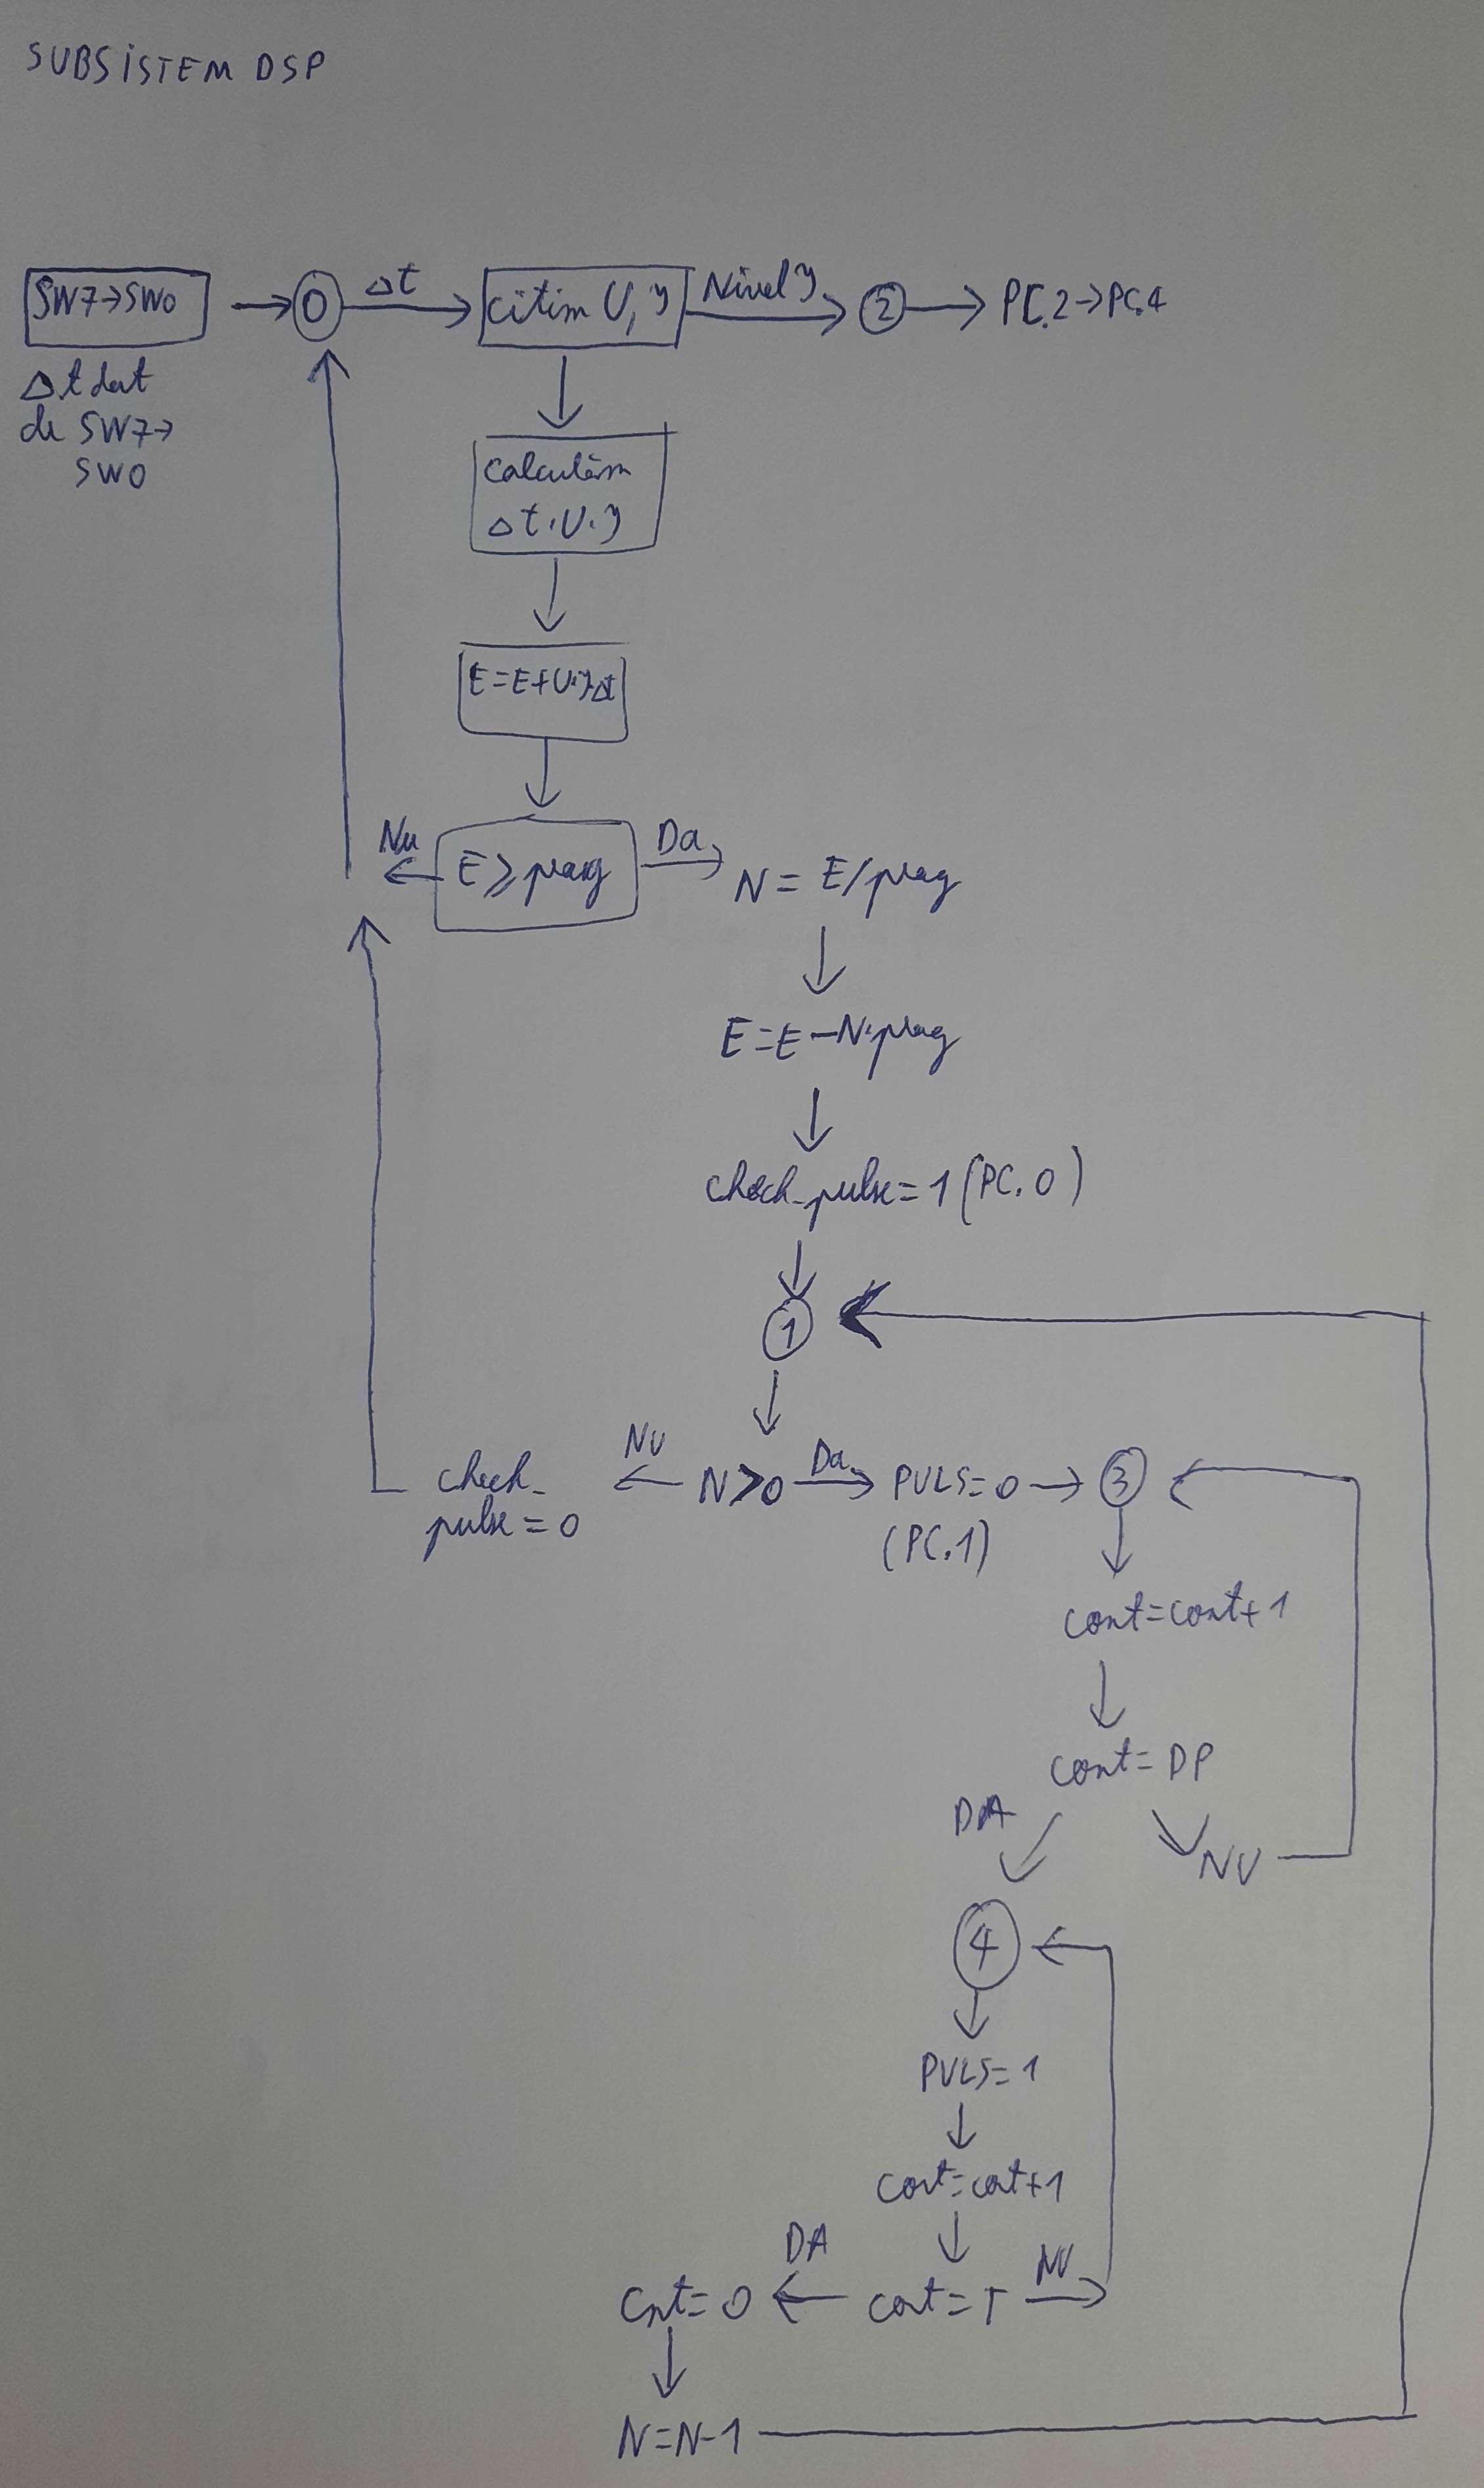 SUBSISTEM DSP
SW7→SW0
0
Δt
citim U, y
Nivel y
2
PC.2→PC.4
Δt dat
de SW7→
SW0
Calculăm
Δt.U.y
E=E+U.y.Δt
Nu
E≥prag
Da
N = E/prag
E=E-N.prag
check_pulse=1 (PC.0)
1
check_
pulse=0
NU
N>0
Da
PULS=0
(PC.1)
3
cont=cont+1
cont=DP
DA
NU
4
PULS=1
cont=cont+1
DA
NU
Cnt=0
cont=T
N=N-1